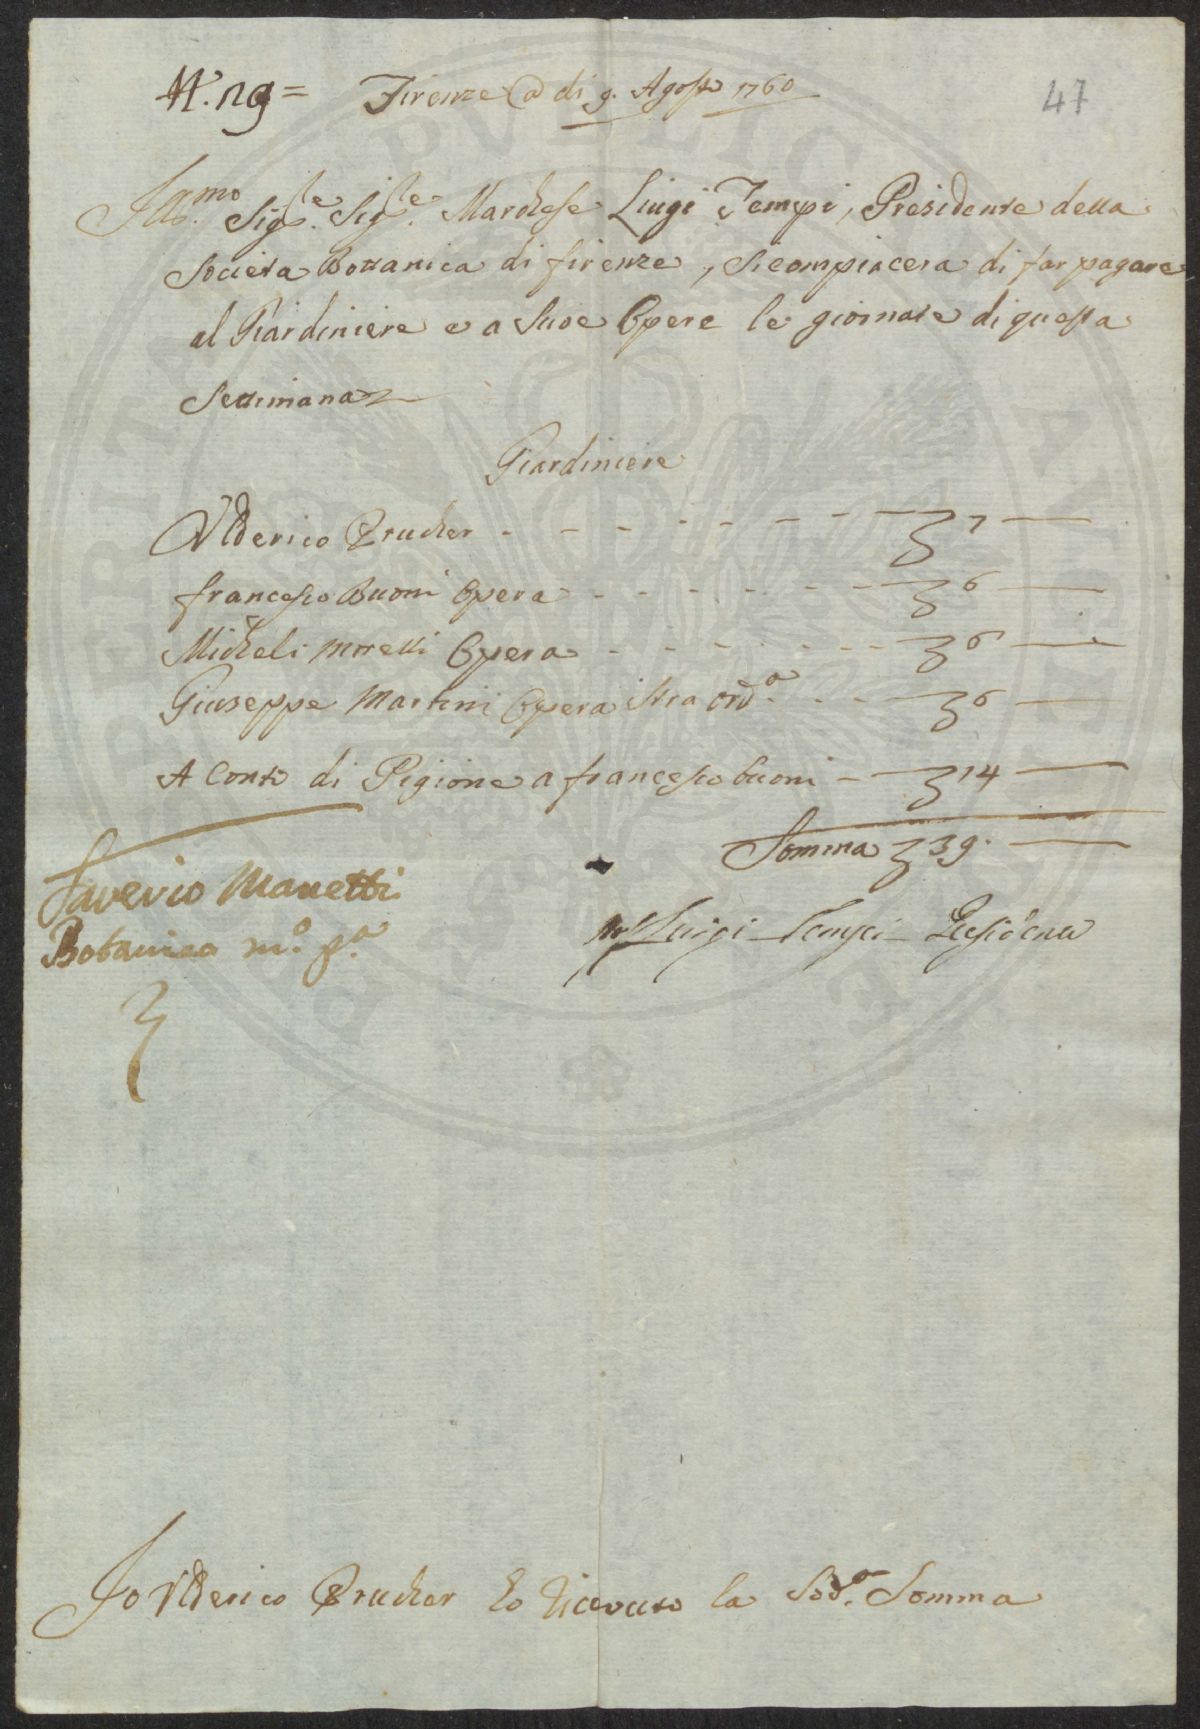 N. 29= Firenze a di 9. Agosto 1760
47
Ill.mo Sig.re Sig.re Marchese Luigi Tempi, Presidente della
Societa Bottanica di firenze, si compiacera di far pagare
al Giardiniere e a Suoe Opere le giornate di questa
Settimana
Giardiniere
Vlderico Prucher - - - - - - - - 7 —
francesco Buoni Opera - - - - - - - 6 —
Micheli Moretti Opera - - - - - - 6 —
Giuseppe Martini Opera Stra ord.a - - - 6 —
A Conto di Pigione a francesco buoni - 14 —
Somma 39. —
Saverio Manetti
Botanico m.o p.a
Luigi Tempi
Io Vlderico Prucher ho riceuuto la Sod.a Somma